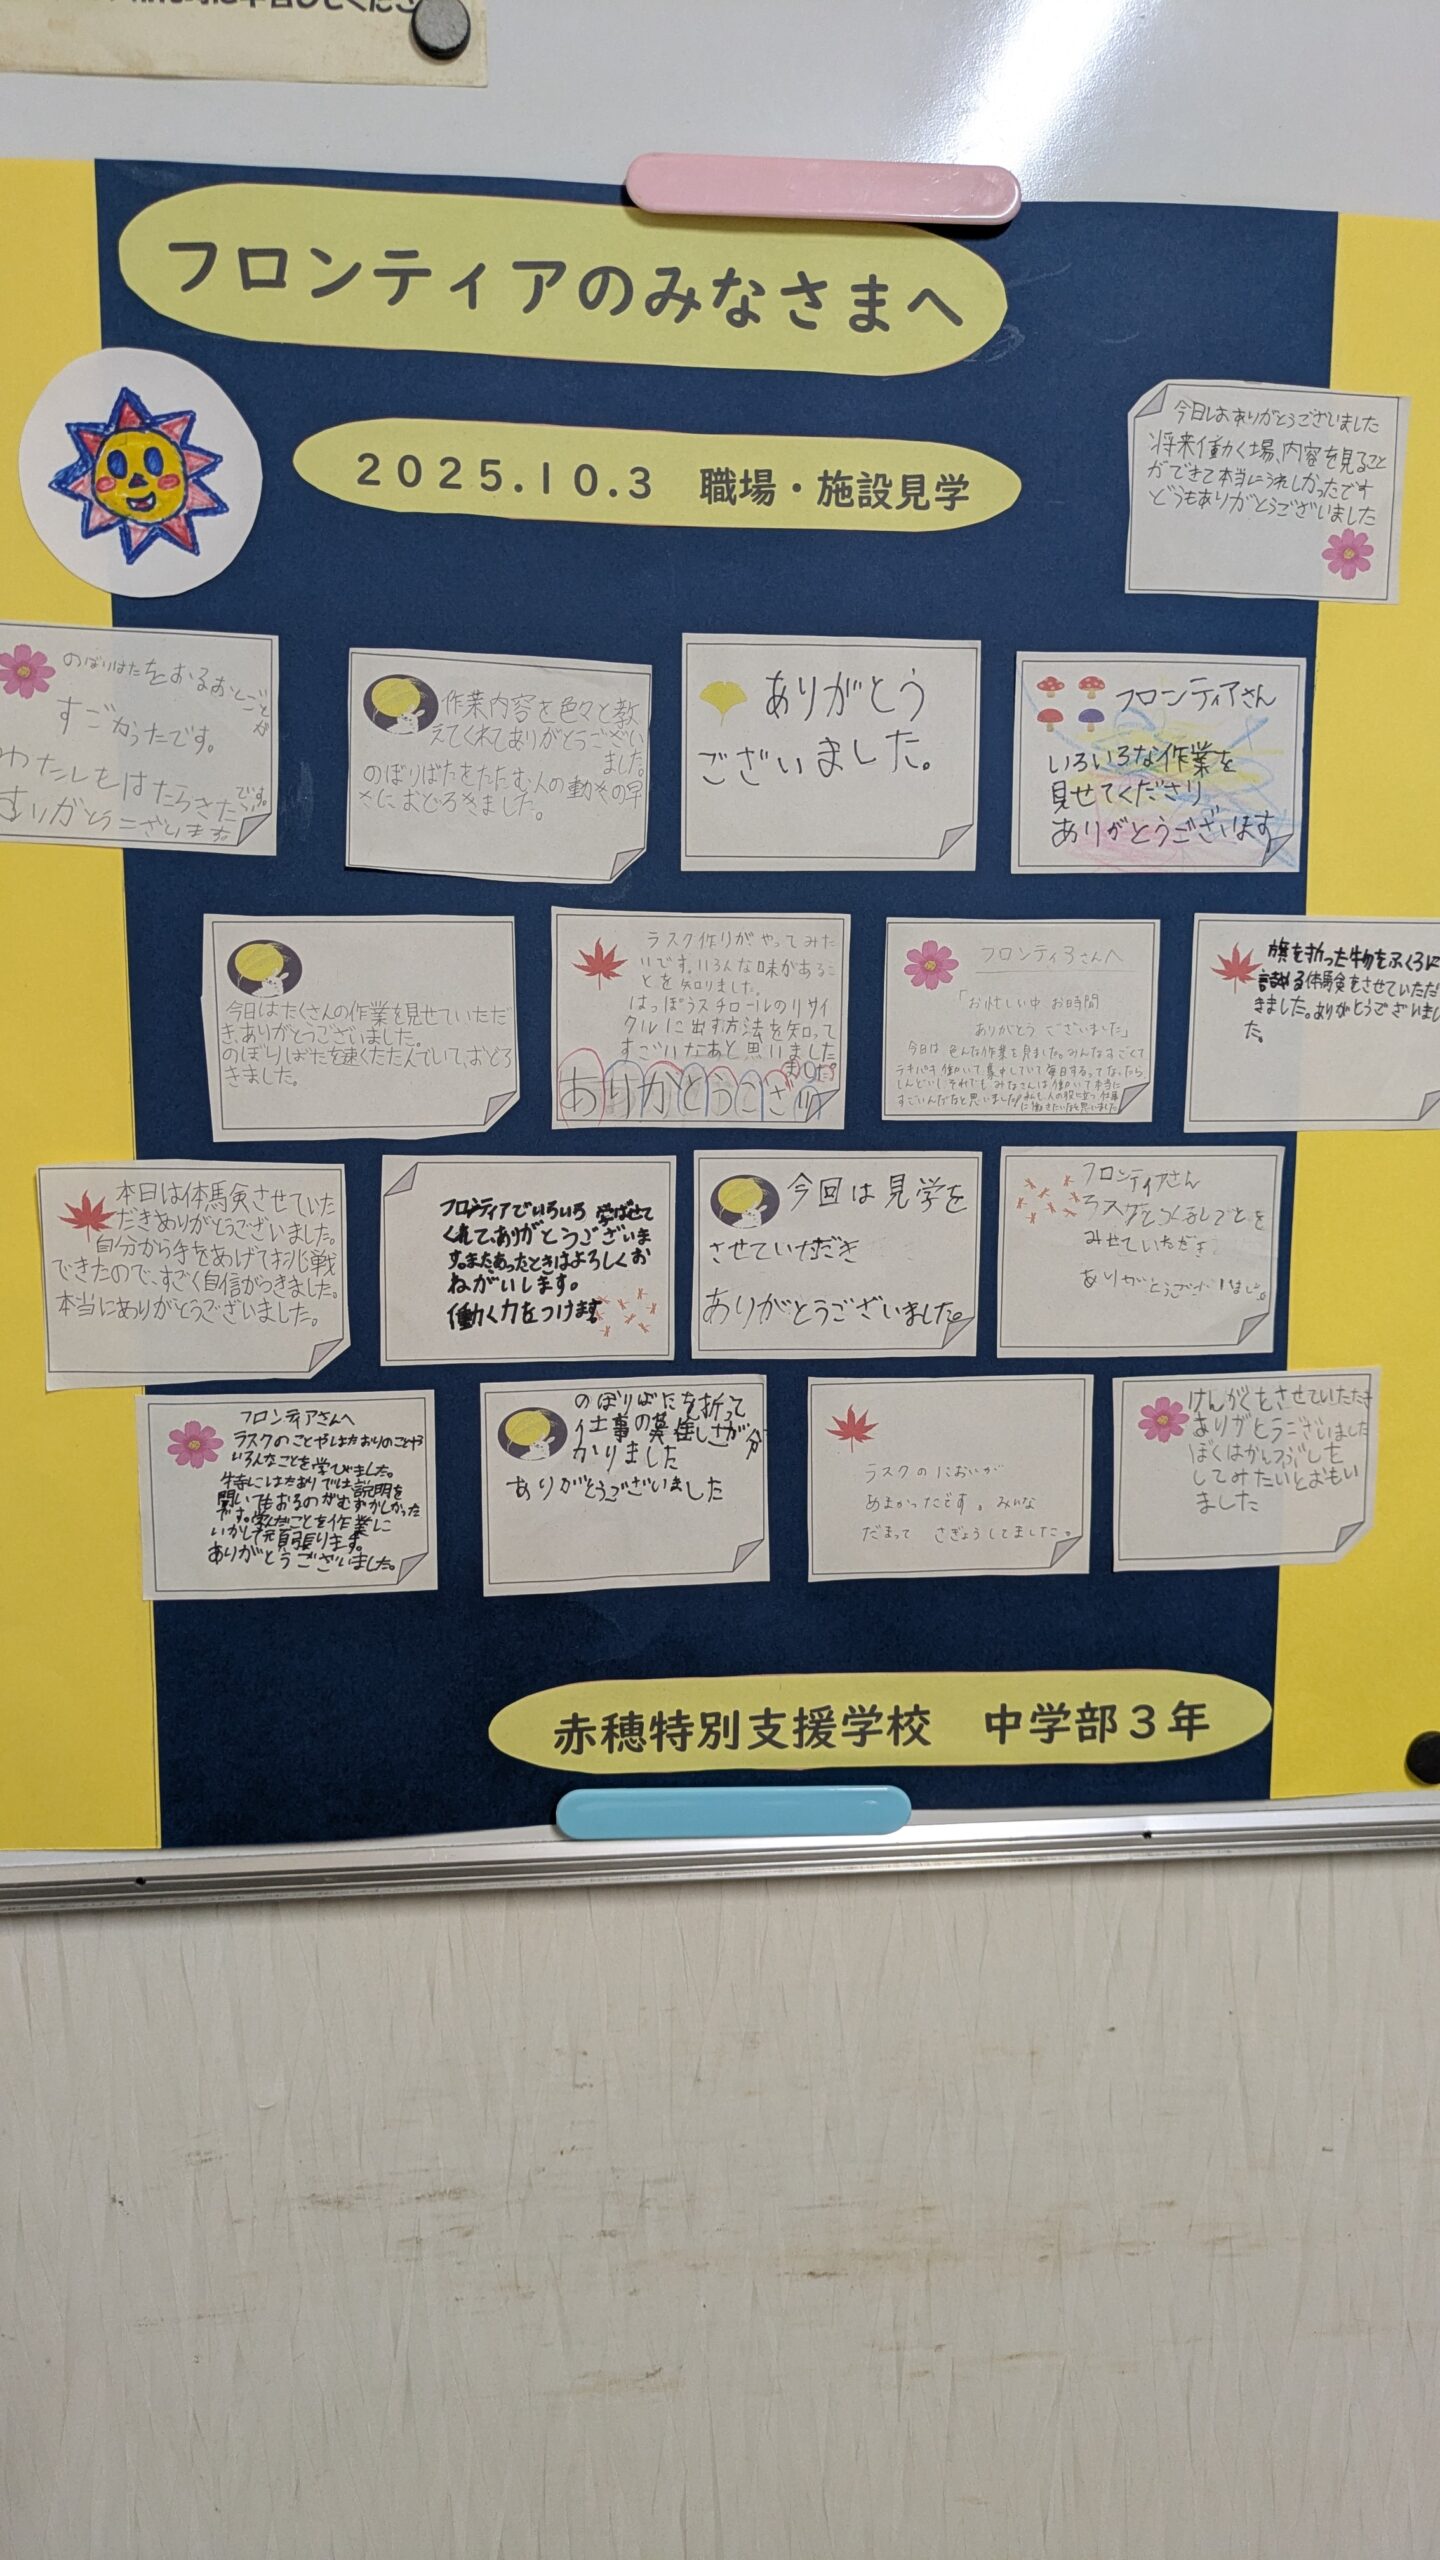 フロンティアのみなさまへ
2025.10.3 職場・施設見学
今日はありがとうございました
将来働く場、内容を見ること
ができて本当にうれしかったです
どうもありがとうございました
のぼりはたをおるおしごとが
すごかったです。
わたしもはたらきたいです。
ありがとうございます。
作業内容を色々と教
えてくれてありがとうござい
ました。
のぼりばたをたたむ人の動きの早
さにおどろきました。
ありがとう
ございました。
フロンティアさん
いろいろな作業を
見せてくださり
ありがとうございます
今日はたくさんの作業を見せていただ
き、ありがとうございました。
のぼりばたを速くたたんでいて、おどろ
きました。
ラスク作りがやってみた
いです。いろんな味があるこ
とを知りました。
はっぽうスチロールのリサイ
クルに出す方法を知って
すごいなあと思いました
ありがとうござい
ました。
フロンティアさんへ
「お忙しい中お時間
ありがとうございました」
今日は色んな作業を見ました。みんなすごくて
テキパキ働いて集中していて毎日するってなったら
しんどいし、それでもみなさんは働いて本当に
すごいんだなと思いました!私も人の役に立つ仕事
に働きたいなと思いました
旗を
物をふくろに
詰める体験をさせていただ
きました。ありがとうございまし
た。
本日は体験させていた
だきありがとうございました。
自分から手をあげて挑戦
できたので、すごく自信がつきました。
本当にありがとうございました。
フロンティアでいろいろ学ばせて
くれて、ありがとうございま
す。またあったときはよろしくお
ねがいします。
働く力をつけます
今回は見学を
させていただき
ありがとうございました。
フロンティアさん
ラスクをつくるしごとを
みせていただき
ありがとうございました。
フロンティアさんへ
ラスクのことやはたおりのことや
いろんなことを学びました。
特にはたおりでは説明を
聞いておるのがむずかしかった
です。学んだことを作業に
いかして頑張ります。
ありがとうございました。
のぼりばたを折って
仕事の難しさが分
かりました
ありがとうございました
ラスクのにおいが
あまかったです。みんな
だまって さぎょうしてました。
けんがくをさせていただき
ありがとうございました
ぼくはかんつぶしを
してみたいとおもい
ました
赤穂特別支援学校 中学部3年